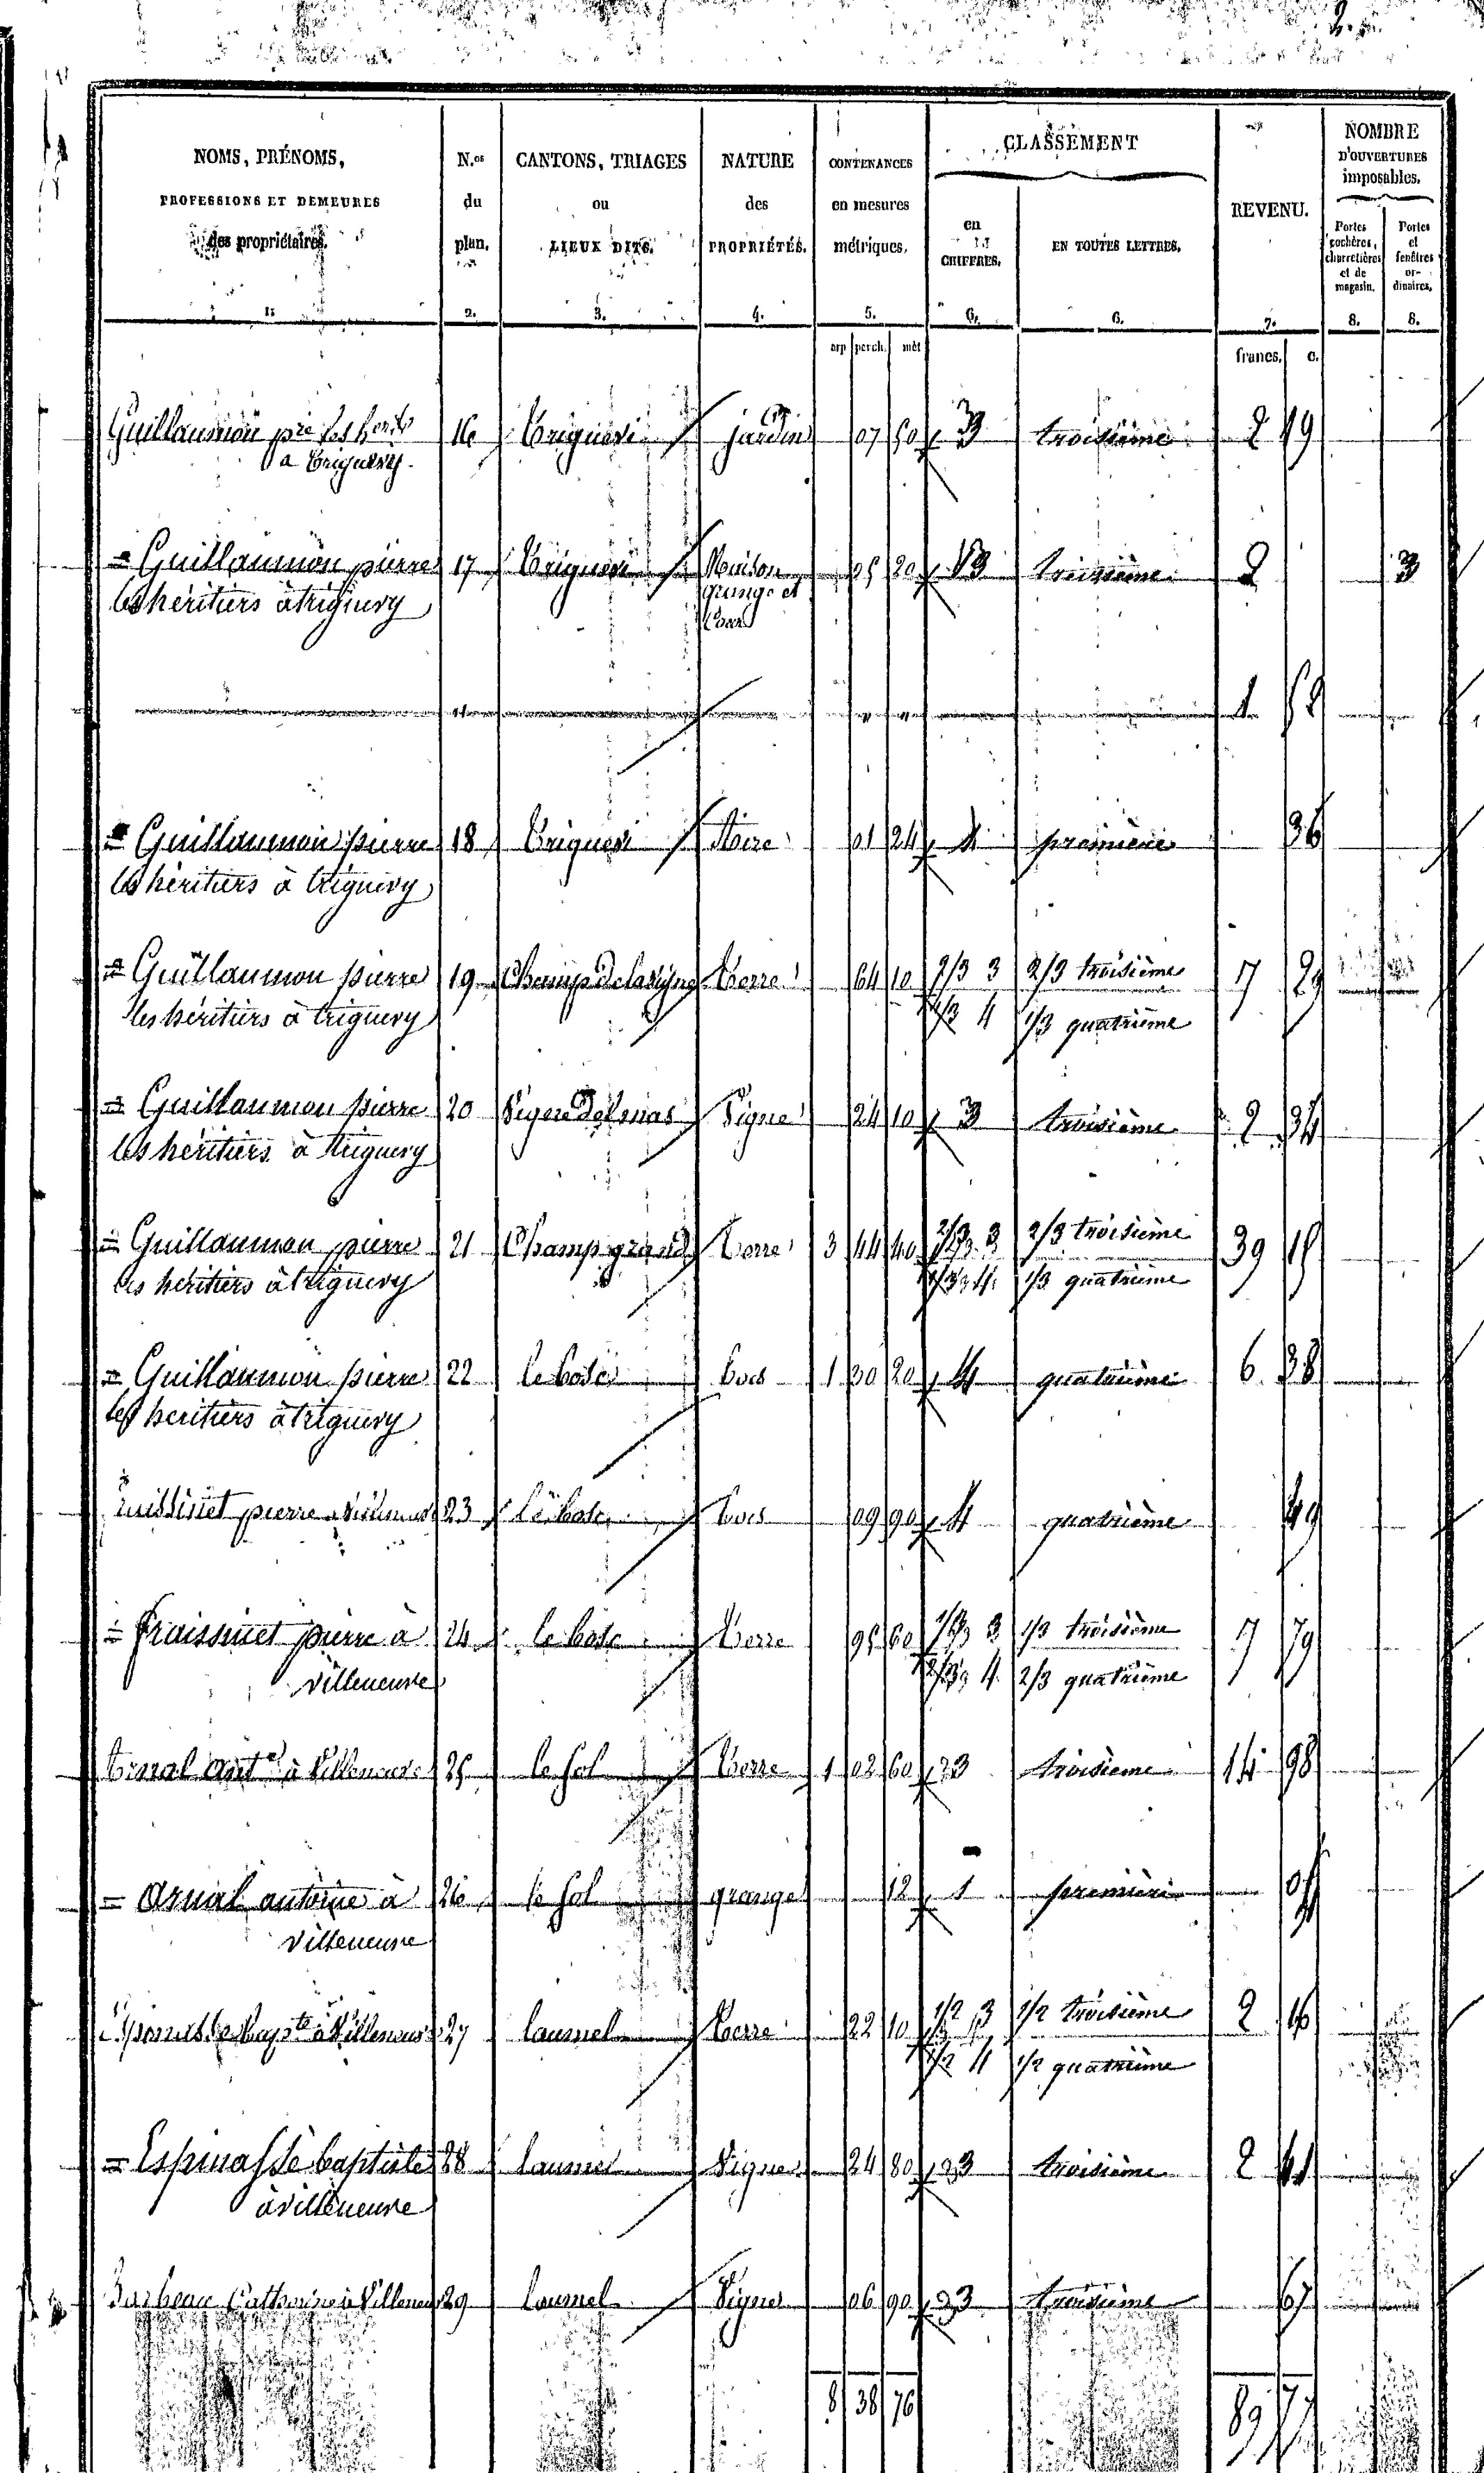 2.
NOMS, PRÉNOMS,
PROFESSIONS ET DEMEURES
des propriétaires.
1.
N.os
du
plan.
2.
CANTONS, TRIAGES
ou
LIEUX DITS.
3.
NATURE
des
PROPRIÉTÉS.
4.
CONTENANCES
en mesures
métriques.
5.
CLASSEMENT
en
CHIFFRES.
6.
EN TOUTES LETTRES.
6.
REVENU.
7.
NOMBRE
D'OUVERTURES
imposables.
Portes
cochères,
charretières
et de
magasin.
8.
Portes
et
fenêtres
or-
dinaires.
8.
arp perch. mèt francs. c.
Guillaumon pre les hers 16 Trigueri jardin 07 50 3 troisième 2 49
a Triguery
= Guillaumon pierre 17 Trigueri Maison 05 20 3 troisième 2 3
les héritiers à triguery grange et
Cour
1 52
= Guillaumon pierre 18 Trigueri Aire 01 24 1 première 36
les héritiers à triguery
= Guillaumon pierre 19 Champ de la vigne Terre 64 10 2/3 3 2/3 troisième 7 29
les héritiers à triguery 1/3 4 1/3 quatrième
= Guillaumon pierre 20 Vigne Delmas Vigne 24 10 3 troisième 2 34
les héritiers à triguery
= Guillaumon pierre 21 Champ grand Terre 3 44 40 2/3 3 2/3 troisième 39 15
les héritiers à triguery 1/3 4 1/3 quatrième
= Guillaumon pierre 22 le bosc bois 1 30 20 4 quatrième 6 38
les héritiers à triguery
pierre 23 le bosc bois 09 90 4 quatrième 49
= fraissinet pierre à 24 le bosc Terre 95 60 1/3 3 1/3 troisième 7 79
villeneuve 2/3 4 2/3 quatrième
Arnal Ante à Villeneuve 25 le sol Terre 1 02 60 3 troisième 14 98
= arnal antoine à 26 le sol grange 12 1 première 04
villeneuve
Espinasse Bapte à Villeneuve 27 laumel Terre 22 10 1/2 3 1/2 troisième 2 16
1/2 4 1/2 quatrième
= Espinasse baptiste 28 laumel Vigne 24 80 3 troisième 2 41
à villeneuve
Catherine à Villeneuve 29 laumel Vigne 06 90 3 troisième 67
8 38 76 89 77